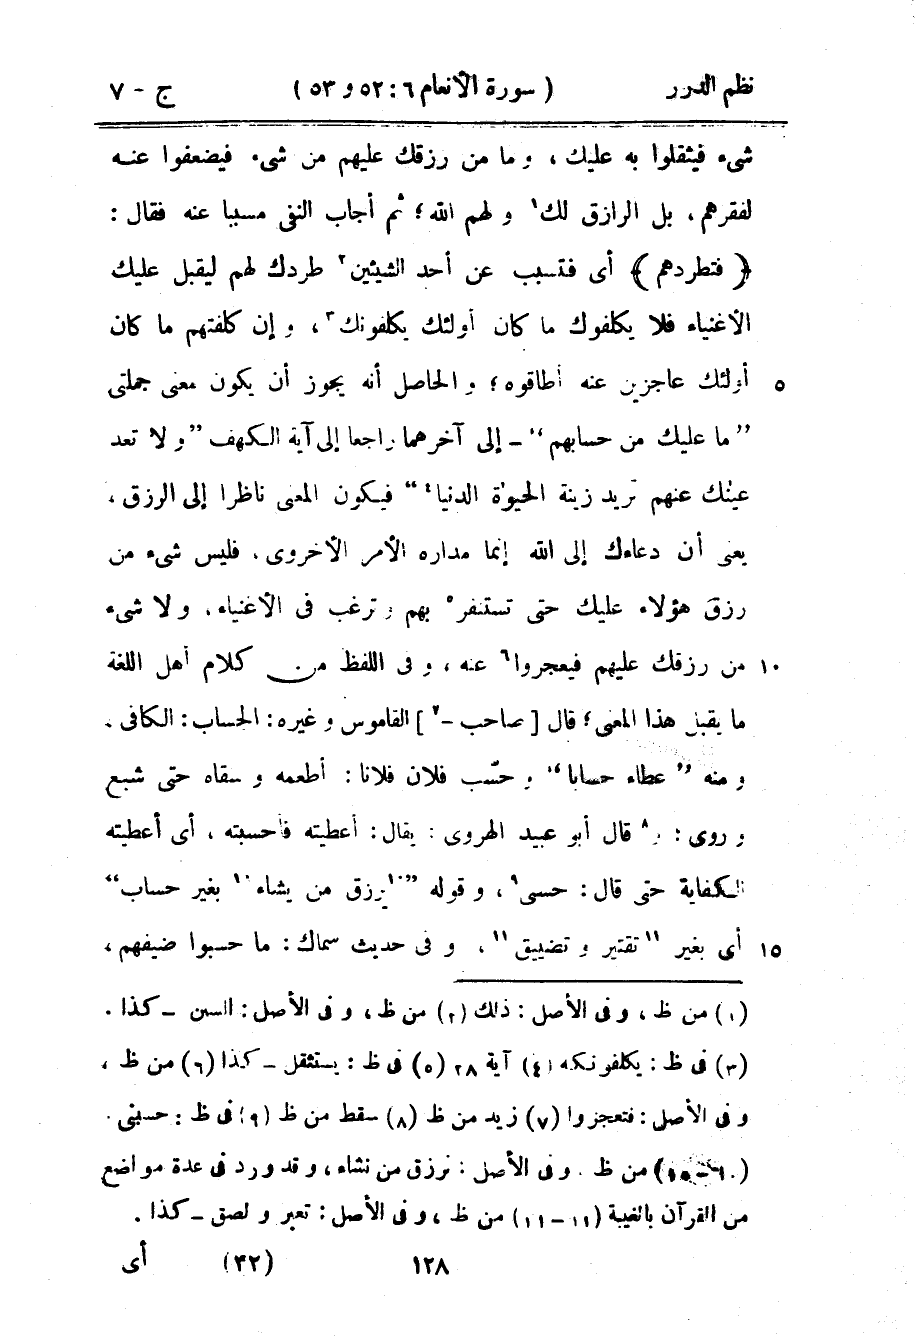 نظم الدرر ( سورة الأنعام ٦ : ٥٢ و ٥٣ ) ج - ٧
شىء فيثقلوا به عليك ، و ما من رزقك عليهم من شىء فيضعفوا عنه
لفقرهم ، بل الرازق لك١ و لهم الله ؛ ثم أجاب النفى مسببا عنه فقال :
﴿ فتطردهم ﴾ أى فتسبب عن أحد الشيئين٢ طردك لهم ليقبل عليك
الأغنياء فلا يكلفوك ما كان أولئك يكلفونك٣ ، و إن كلفتهم ما كان
٥ أولئك عاجزين عنه أطاقوه ؛ و الحاصل أنه يجوز أن يكون معنى جملتى
” ما عليك من حسابهم “ - إلى آخرهما راجعا إلى آية الكهف ” و لا تعد
عينٰك عنهم تريد زينة الحيوٰة الدنيا٤ “ فيكون المعنى ناظرا إلى الرزق ،
يعنى أن دعاءك إلى الله إنما مداره الأمر الأخروى ، فليس شىء من
رزق هؤلاء عليك حتى تستنفر٥ بهم و ترغب فى الأغنياء ، و لا شىء
١٠ من رزقك عليهم فيعجروا٦ عنه ، و فى اللفظ من كلام أهل اللغة
ما يقبل هذا المعنى ؛ قال [ صاحب -٧ ] القاموس و غيره : الحساب : الكافى .
و منه ” عطاء حسابا “ و حسّب فلان فلانا : أطعمه و سقاه حتى شبع
و روى : و٨ قال أبو عبيد الهروى : يقال : أعطيته فأحسبته ، أى أعطيته
الكفاية حتى قال : حسبى٩ ، و قوله ” ١٠يرزق من يشاء١٠ بغير حساب “
١٥ أى بغير ١١تقتير و تضييق١١ ، و فى حديث سماك : ما حسبوا ضيفهم ،
(١) من ظ ، و فى الأصل : ذلك (٢) من ظ ، و فى الأصل : السبن - كذا .
(٣) فى ظ : يكلفونكه (٤) آية ٢٨ (٥) فى ظ : يستثقل - كذا (٦) من ظ ،
و فى الأصل : فتعجزوا (٧) زيد من ظ (٨) سقط من ظ (٩) فى ظ : حسبنى .
(١٠-١٠) من ظ . و فى الأصل : نرزق من نشاء ، و قد ورد فى عدة مواضع
من القرآن بالغيبة (١١-١١) من ظ ، و فى الأصل : تعبر و لصق - كذا .
١٢٨ (٣٢) أى